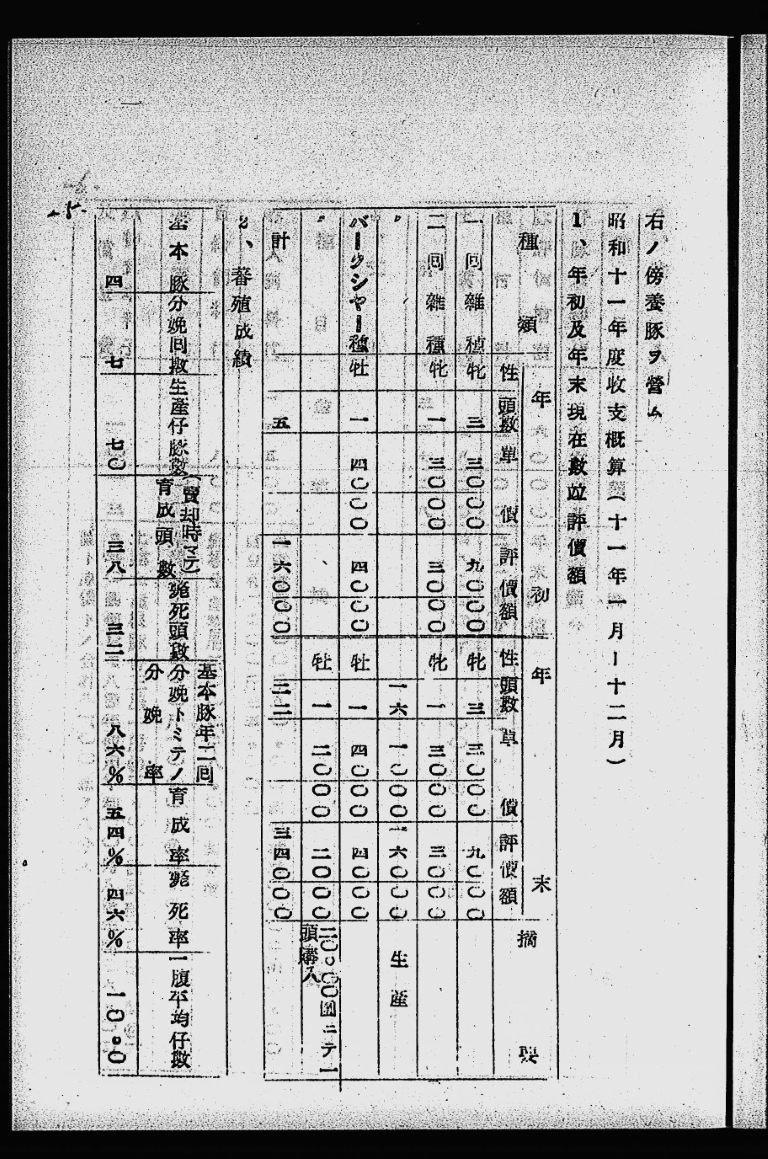 右ノ傍養豚ヲ營ム
昭和十一年度收支概算(十一年一月ー十二月)
1、年初及年末現在數竝評價額
種類 年初 年末 摘要
性 頭數 單價 評價額 性 頭數 單價 評價額
一回雜種 牝 三 三〇〇〇 九〇〇〇 牝 三 三〇〇〇 九〇〇〇
二回雜種 牝 一 三〇〇〇 三〇〇〇 牝 一 三〇〇〇 三〇〇〇
〃 一六 一〇〇〇 一六〇〇〇 生産
バークシャー種 牡 一 四〇〇〇 四〇〇〇 牡 一 四〇〇〇 四〇〇〇
〃 牡 一 二〇〇〇 二〇〇〇 二〇.〇〇圓ニテ一頭購入
計 五 一六〇〇〇 二二 三四〇〇〇
2、蕃殖成績
基本豚 分娩回數 生産仔豚數 育成頭數(賣却時マデ) 斃死頭數 基本豚年二回分娩トミテノ分娩率 育成率 斃死率 一腹平均仔數
四 七 七〇 三八 三二 八六% 五四% 四六% 一〇.〇